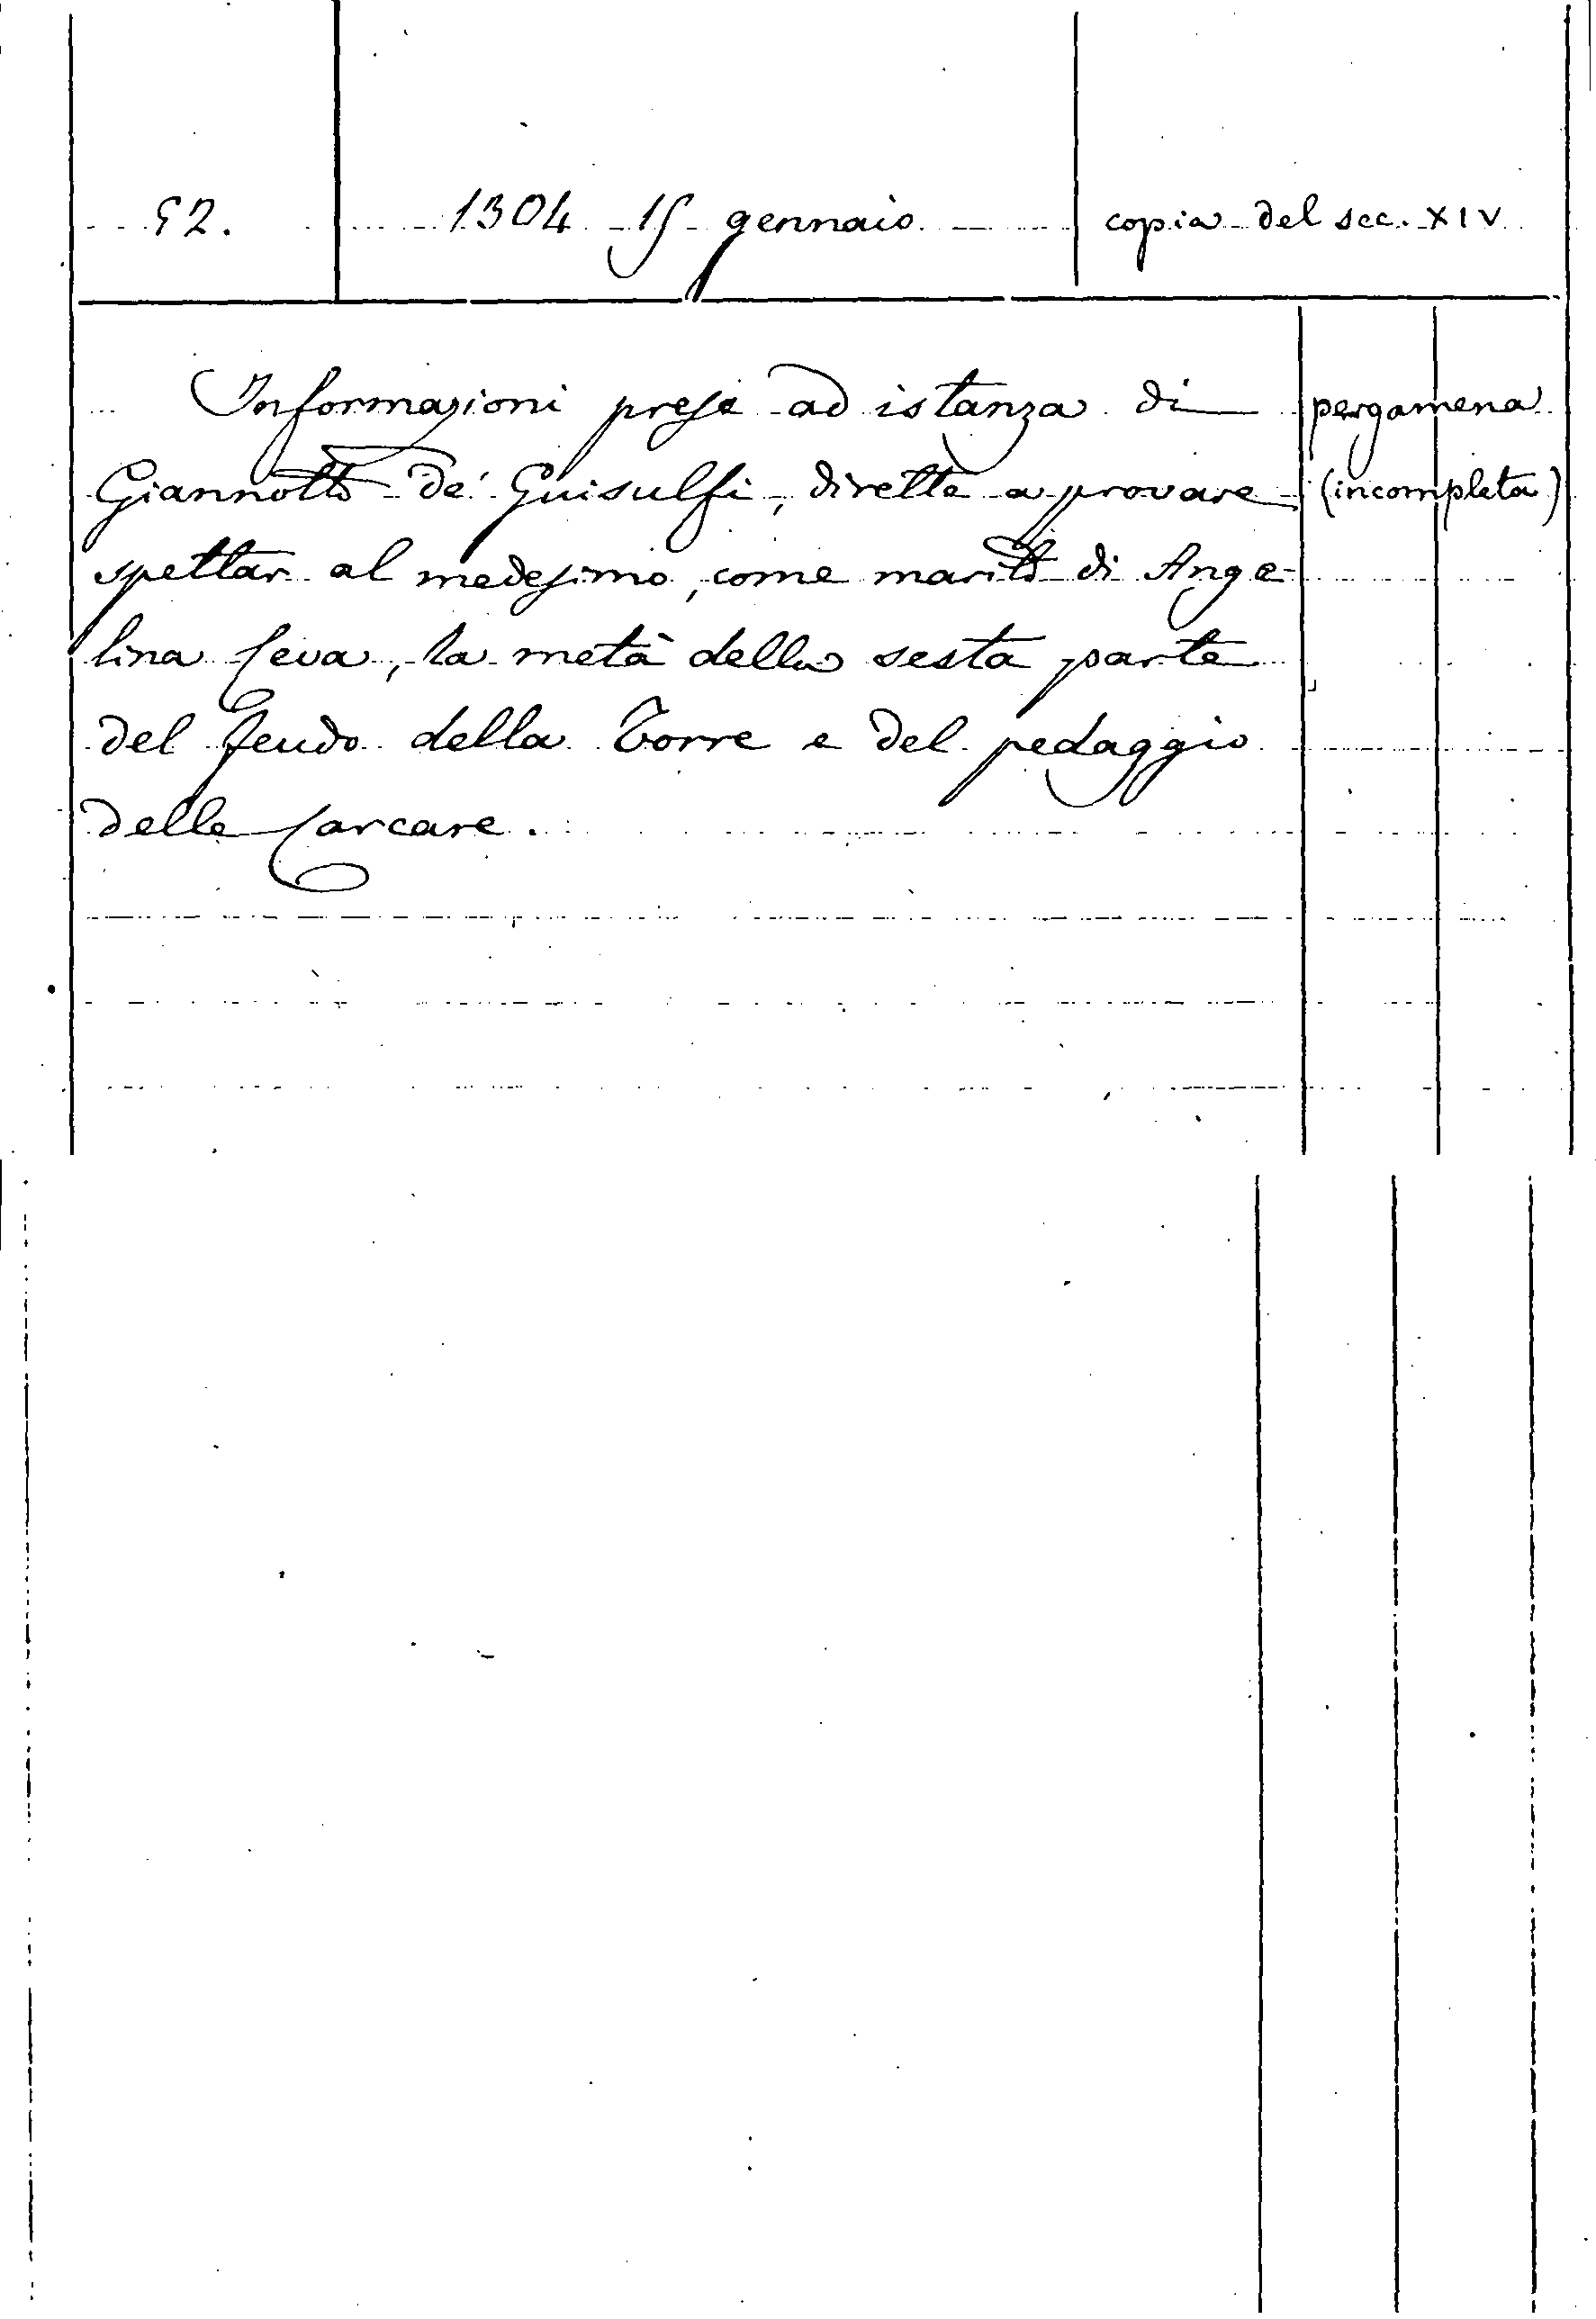 52. 1304 15 gennaio copia del sec. XIV
Informazioni prese ad istanza di pergamena
Giannotto de' Guisulfi, dirette a provare (incompleta)
spettar al medesimo, come marito di Ange-
lina Ceva, la metà della sesta parte
del feudo della Torre e del pedaggio
delle Carcare.